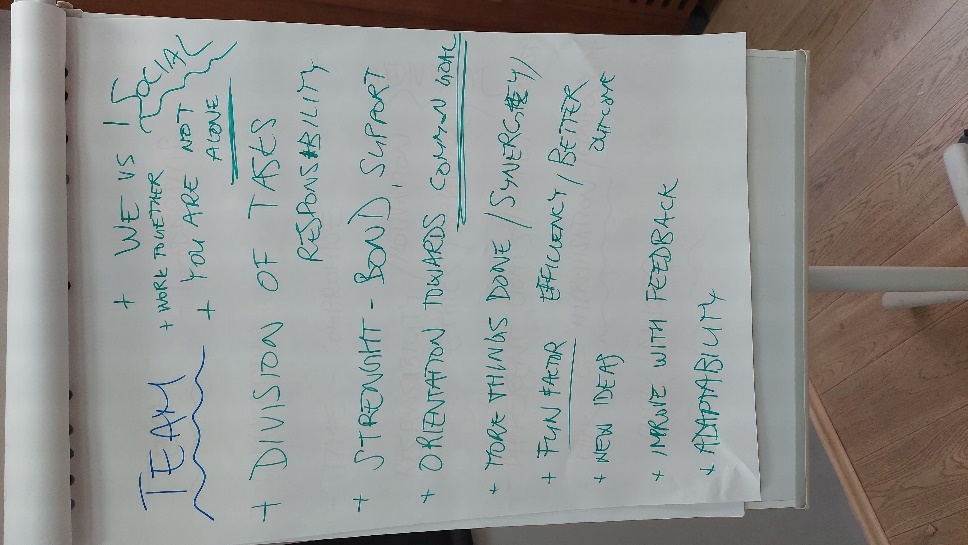 TEAM
+ WE VS I
SOCIAL
+ WORK TOGETHER
+ YOU ARE NOT
ALONE
+ DIVISION OF TASKS
RESPONSABILITY
+ STRENGHT - BOND, SUPPORT
+ ORIENTATION TOWARDS COMMON GOAL
+ MORE THINGS DONE / SYNERGEY /
+ FUN FACTOR EFFICIENCY / BETTER
OUTCOME
+ NEW IDEAS
+ IMPROVE WITH FEEDBACK
+ ADAPTABILITY